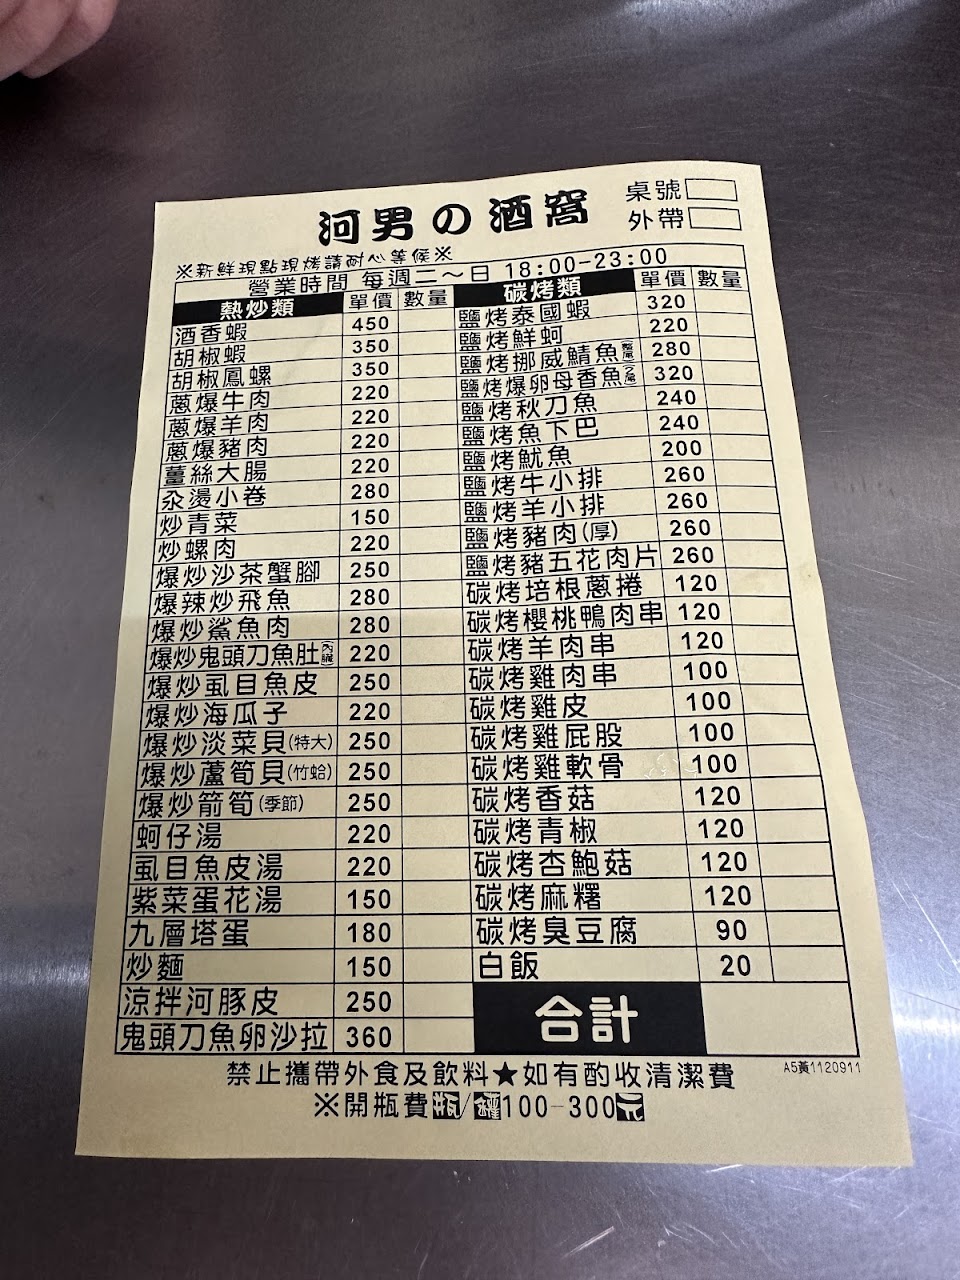 河男の酒窩
桌號
外帶
※新鮮現點現烤請耐心等候※
營業時間 每週二～日 18:00-23:00
熱炒類 單價 數量
酒香蝦 450
胡椒蝦 350
胡椒鳳螺 350
蔥爆牛肉 220
蔥爆羊肉 220
蔥爆豬肉 220
薑絲大腸 220
汆燙小卷 280
炒青菜 150
炒螺肉 220
爆炒沙茶蟹腳 250
爆辣炒飛魚 280
爆炒鯊魚肉 280
爆炒鬼頭刀魚肚(內臟) 220
爆炒虱目魚皮 250
爆炒海瓜子 220
爆炒淡菜貝(特大) 250
爆炒蘆筍貝(竹蛤) 250
爆炒箭筍(季節) 250
蚵仔湯 220
虱目魚皮湯 220
紫菜蛋花湯 150
九層塔蛋 180
炒麵 150
涼拌河豚皮 250
鬼頭刀魚卵沙拉 360
碳烤類 單價 數量
鹽烤泰國蝦 320
鹽烤鮮蚵 220
鹽烤挪威鯖魚 280
鹽烤爆卵母香魚 320
鹽烤秋刀魚 240
鹽烤魚下巴 240
鹽烤魷魚 200
鹽烤牛小排 260
鹽烤羊小排 260
鹽烤豬肉(厚) 260
鹽烤豬五花肉片 260
碳烤培根蔥捲 120
碳烤櫻桃鴨肉串 120
碳烤羊肉串 120
碳烤雞肉串 100
碳烤雞皮 100
碳烤雞屁股 100
碳烤雞軟骨 100
碳烤香菇 120
碳烤青椒 120
碳烤杏鮑菇 120
碳烤麻糬 120
碳烤臭豆腐 90
白飯 20
合計
禁止攜帶外食及飲料★如有酌收清潔費
A5黃1120911
※開瓶費瓶/罐100-300元